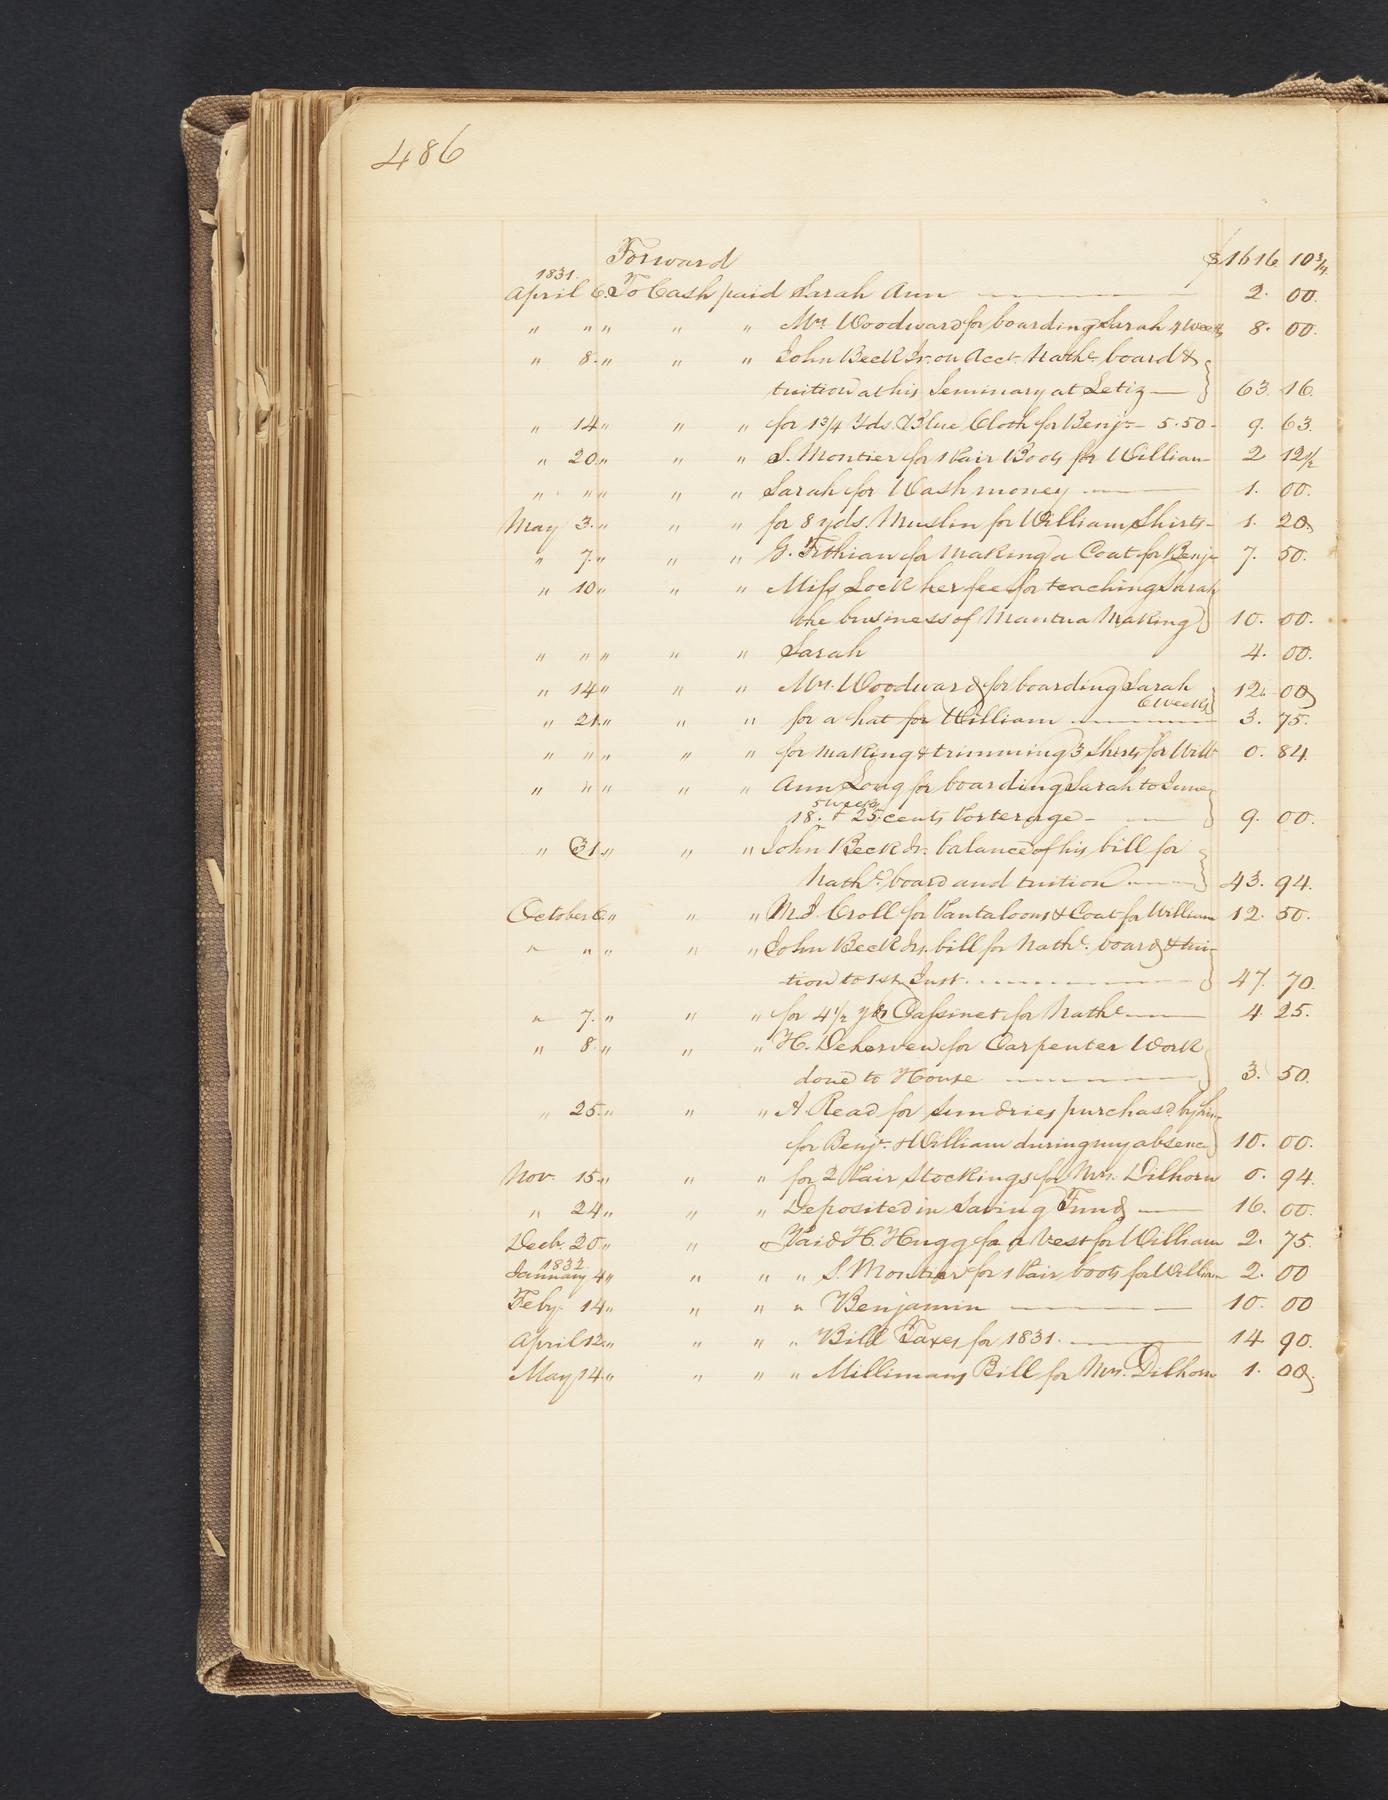 486
Forward $1616 10 3/4
1831.
April 6. To Cash paid Sarah Ann 2. 00.
" " " " " Mrs. Woodward for boarding Sarah 4 Weeks 8. 00.
" 8. " " " John Beck Jr. on Acct. Nathl. board &
tuition at his Seminary at Letiz 63. 16.
" 14 " " " for 1 3/4 Yds. Blue Cloth for Benjn. 5.50 9. 63.
" 20 " " " S. Montier for 1 Pair Boots for William 2 12 1/2
" " " " " Sarah for Wash money 1. 00.
May 3. " " " for 8 yds. Muslin for William Shirts 1. 20
" 7. " " " G. Fithian for Making a Coat for Benjn 7. 50.
" 10 " " " Miss Lock her fee for teaching Sarah
the business of Mantua Making 10. 00.
" " " " " Sarah 4. 00.
" 14 " " " Mrs. Woodward for boarding Sarah 12. 00
6 Weeks
" 21. " " " for a hat for William 3. 75.
" " " " " for making & trimming 3 Shirts for Willm 0. 84
" " " " " Ann Long for boarding Sarah to June
5 weeks
18. & 25 cents Porterage 9. 00.
" 31. " " " John Beck Jr. balance of his bill for
Nathl. board and tuition 43. 94.
October 6. " " " M. J. Croll for Pantaloons & Coat for William 12. 50.
" " " " " John Beck Jrs. bill for Nathl. board & tui-
tion to 1st Inst. 47. 70.
" 7. " " " for 4 1/2 yds Cassinet for Nathl 4 25.
" 8. " " " H. for Carpenter Work
done to House 3. 50.
" 25. " " " A Read for Sundries purchasd. by
for Benjn. & William during my absence 10. 00.
Nov. 15. " " " for 2 Pair Stockings for Mrs. Dilhorn 0. 94.
" 24 " " " Deposited in Saving Fund 16. 00.
Decbr. 20 " " Paid H. Hugg for a Vest for William 2. 75.
1832.
January 4 " " " " S. Montier for 1 Pair boots for William 2. 00
Feby. 14 " " " " Benjamin 10. 00
April 12 " " " " Bill Taxes for 1831. 14 90.
May 14 " " " " Millimans Bill for Mrs. Dilhorn 1. 00